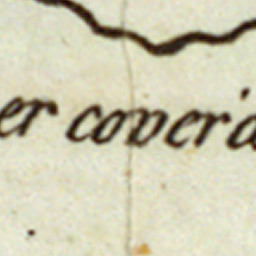 er cover'd